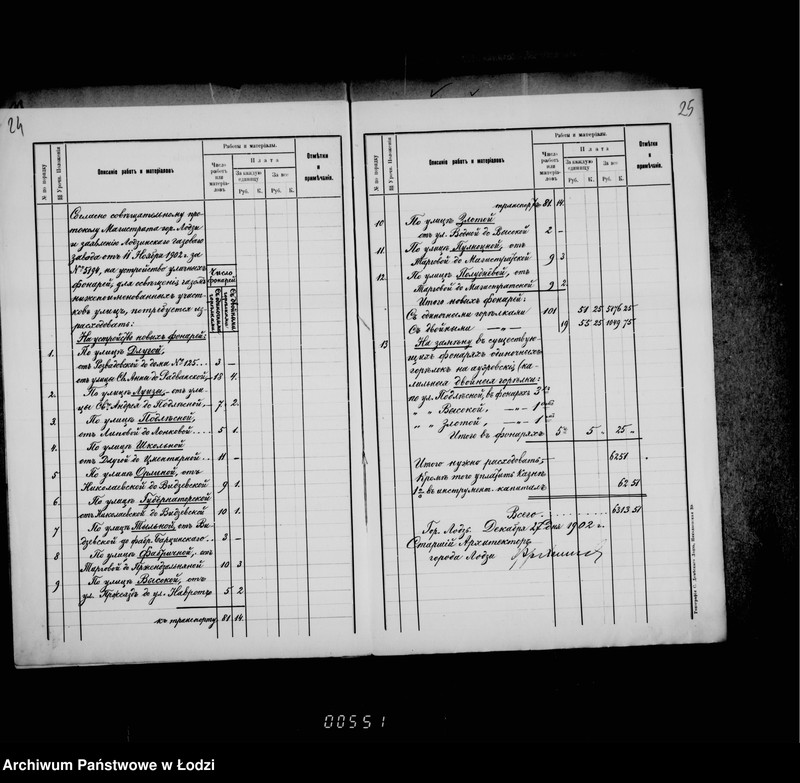 24
№ по порядку
№№ Урочн. Положенія
Описаніе работъ и матеріаловъ
Работы и матеріалы.
Число работъ или матеріаловъ
Плата
За каждую единицу
За все
Руб. К. Руб. К.
Отмѣтки и примѣчанія.
Согласно совѣщательному протоколу Магистрата гор. Лодзи
и заявленію Лодзинскаго газоваго
завода отъ 11 Ноября 1902 г. за
№ 5794, на устройство уличныхъ
фонарей, для освѣщенія газомъ
нижепоименованныхъ участковъ улицъ, потребуется израсходовать:
Число фонарей
съ одиночными горѣлками
съ двойными горѣлками
На устройство новыхъ фонарей:
1. По улицѣ Длугой,
отъ Розвадовской до дома № 125... 3 —
отъ улицы Св. Анны до Радванской, 18 4.
2. По улицѣ Луизы, отъ улицы Св. Андрея до Подлѣсной, 7 2.
3. По улицѣ Подлѣсной,
отъ Липовой до Лонковой... 5 1.
4. По улицѣ Школьной
отъ Длугой до Цментарной... 11 —
5 По улицѣ Орлиной, отъ
Николаевской до Видзевской 9 1.
6. По улицѣ Губернаторской
отъ Николаевской до Видзевской 10 1.
7 По улицѣ Тыльной, отъ Видзевской до фабр. 3 —
8 По улицѣ Фабричной, отъ
Тарговой до Пржендзальняной 10 3
9 По улицѣ Высокой, отъ
ул. Проѣздъ до ул. Навротъ 5 2
къ транспорту 81 14.
25
№ по порядку
№№ Урочн. Положенія
Описаніе работъ и матеріаловъ
Работы и матеріалы.
Число работъ или матеріаловъ
Плата
За каждую единицу
За все
Руб. К. Руб. К.
Отмѣтки и примѣчанія.
транспортъ 81 14.
10 По улицѣ Злотой
отъ ул. Водной до Высокой 2 —
11. По улицѣ Пулноцной, отъ
Тарговой до Магистратской 9 3
12. По улицѣ Полуднёвой, отъ
Тарговой до Магистратской 9 2.
Итого новыхъ фонарей:
Съ одиночными горѣлками 101 51 25 5176 25
Съ двойными —„— 19 55 25 1049 75
13 На замѣну въ существующихъ фонаряхъ одиночныхъ
горѣлокъ на ауэровскія (калильныя) двойныя горѣлки:
по ул. Подлѣсной, въ фонаряхъ 3
„ „ Высокой, —„— 1
„ „ Злотой, —„— 1
Итого въ фонаряхъ 5 5 „ 25 „
Итого нужно расходовать, 6251
Кромѣ того уплатить Казнѣ
1% въ инструмент. капиталъ 62 51
Всего 6313 51
Гор. Лодзь. Декабря 17 дня 1902 г.
Старшій Архитекторъ
города Лодзи
00551
Archiwum Państwowe w Łodzi